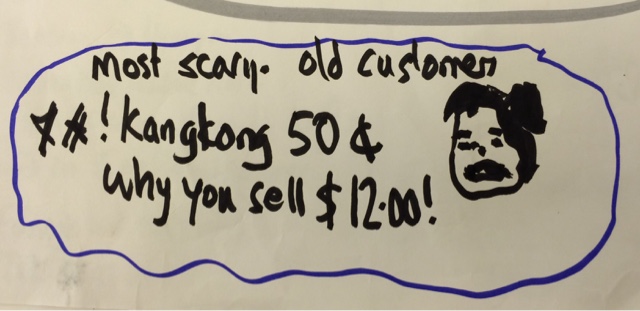 Most scary. old customer
**! kangkong 50 ¢
why you sell $12.00!